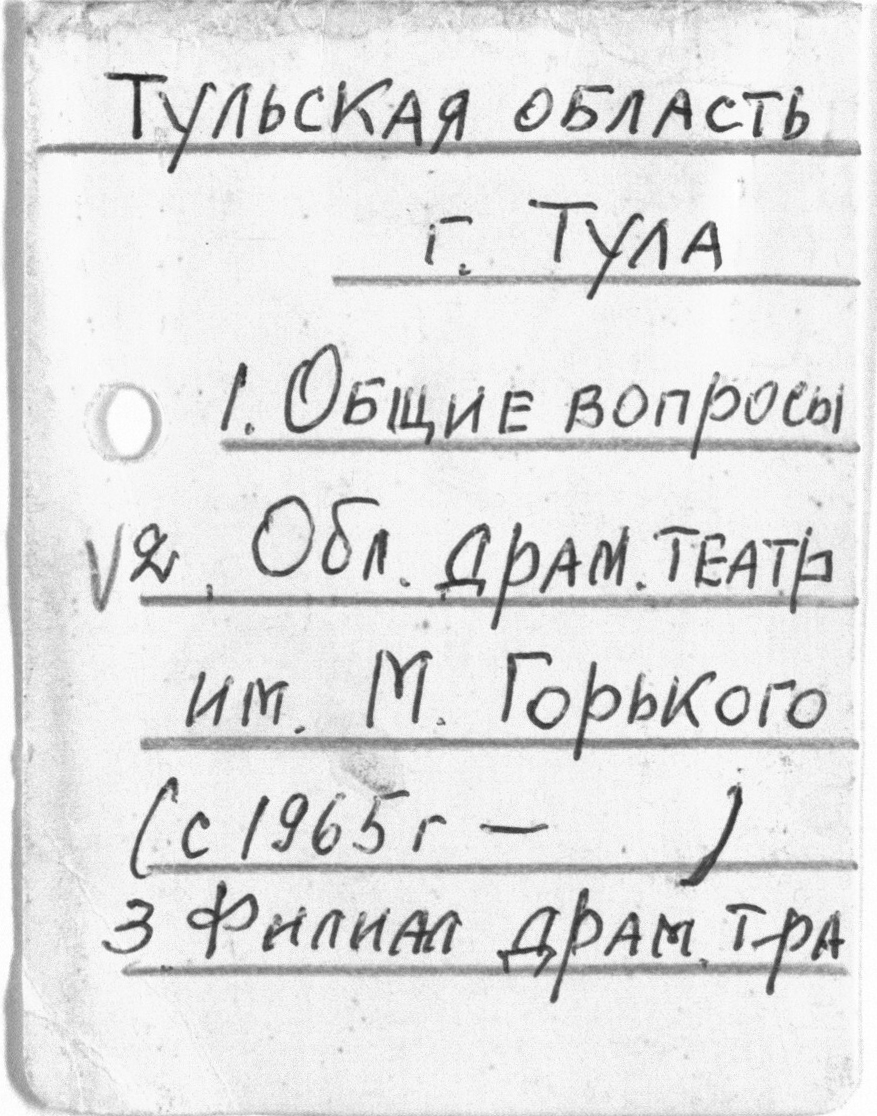 Тульская область
г. Тула
1. Общие вопросы
V 2. Обл. драм. театр
им. М. Горького
(с 1965 г — )
3 Филиал драм. т-ра